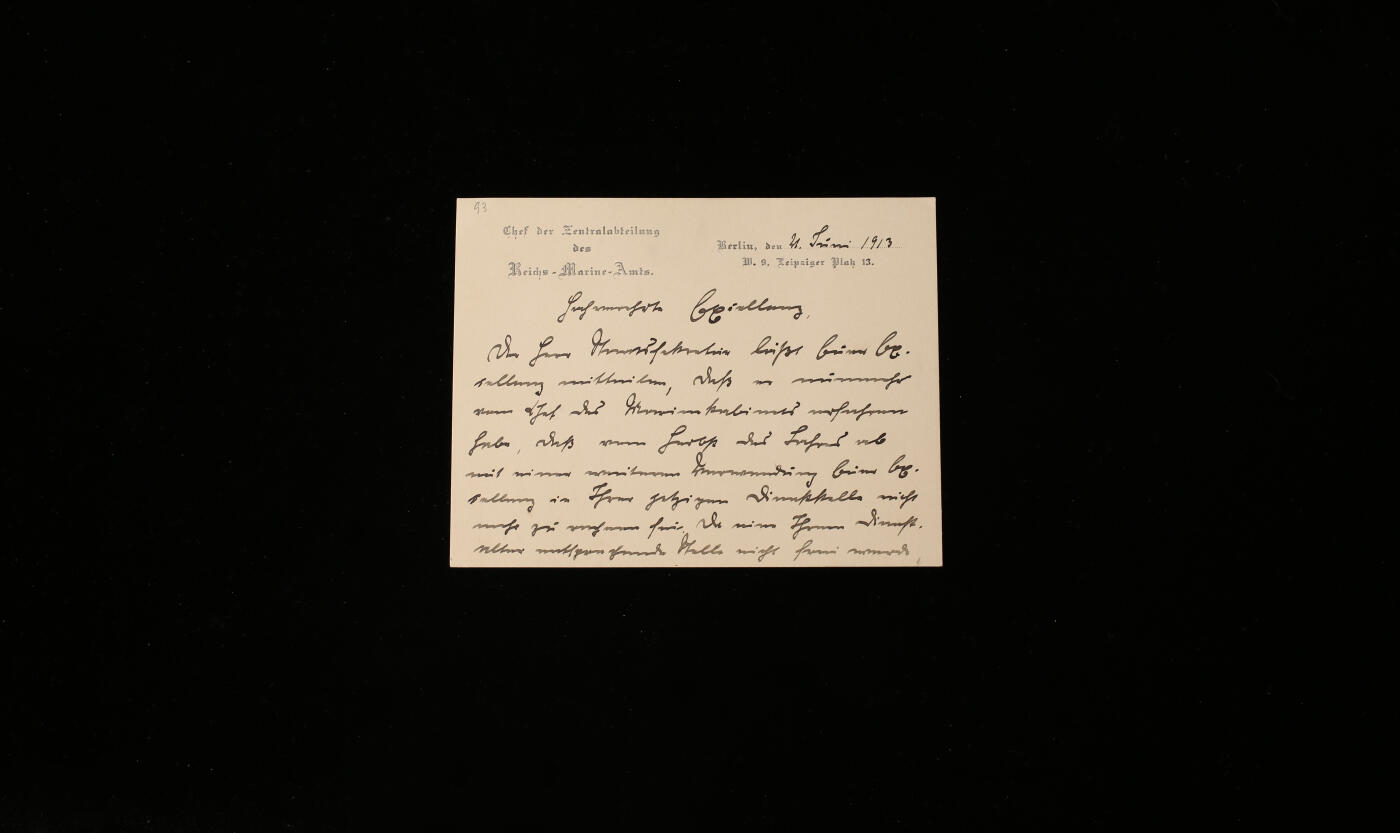 93
Chef der Zentralabteilung
des
Reichs-Marine-Amts.
Berlin, den 21. Juni 1913
W. 9, Leipziger Platz 13.
Hochverehrte Exzellenz,
Der Herr Staatssekretär läßt Eurer Ex-
zellenz mitteilen, daß er nunmehr
vom Chef des Marinekabinets erfahren
habe, daß vom Herbst des Jahres ab
mit einer weiteren Verwendung Eurer Ex-
zellenz in Ihrer jetzigen Dienststelle nicht
mehr zu rechnen sei. Da eine Ihrem Dienst-
alter entsprechende Stelle nicht frei werde